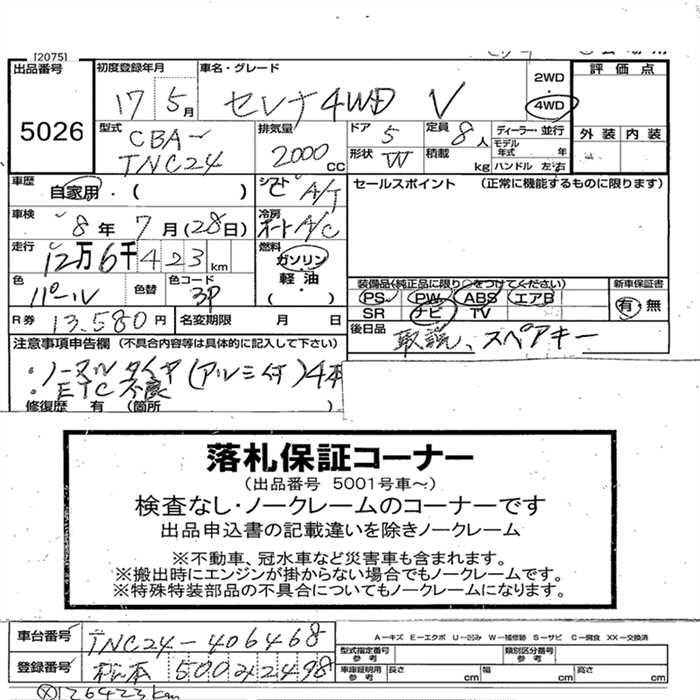 [2075]
出品番号 初度登録年月 車名・グレード 2WD 評価点
5026 17 5月 セレナ4WD V 4WD
外装 内装
型式 排気量 ドア 5 定員 8人 ディーラー 並行
CBA- モデル年式 年
TNC24 2000CC 形状 W 積載 kg ハンドル 左・右
車歴 自家用・( ) シフト A/T セールスポイント (正常に機能するものに限ります)
車検 8年7月(28日) 冷房 オートA/C
走行 12万6千423km 燃料 ガソリン・軽油・( )
色 パール 色替 色コード 3P
装備品(純正品に限り○をつけてください) 新車保証書
PS PW ABS エアB 有・無
SR ナビ TV
R券 13,580円 名変期限 月 日 後日品 取説、スペアキー
注意事項申告欄 (不具合内容等は具体的に記入して下さい)
・ノーマルタイヤ(アルミ付)4本
・ETC不良
修復歴 有 (箇所 )
落札保証コーナー
(出品番号 5001号車~)
検査なし・ノークレームのコーナーです
出品申込書の記載違いを除きノークレーム
※不動車、冠水車など災害車も含まれます。
※搬出時にエンジンが掛からない場合でもノークレームです。
※特殊特装部品の不具合についてもノークレームになります。
車台番号 TNC24-406468
A-キズ E-エクボ U-凹み W-補修跡 S-サビ C-腐食 XX-交換済
型式指定番号 参考 類別区分番号 参考
登録番号 松本 500 2498
車庫証明用 参考 長さ cm 幅 cm 高さ cm
126423km